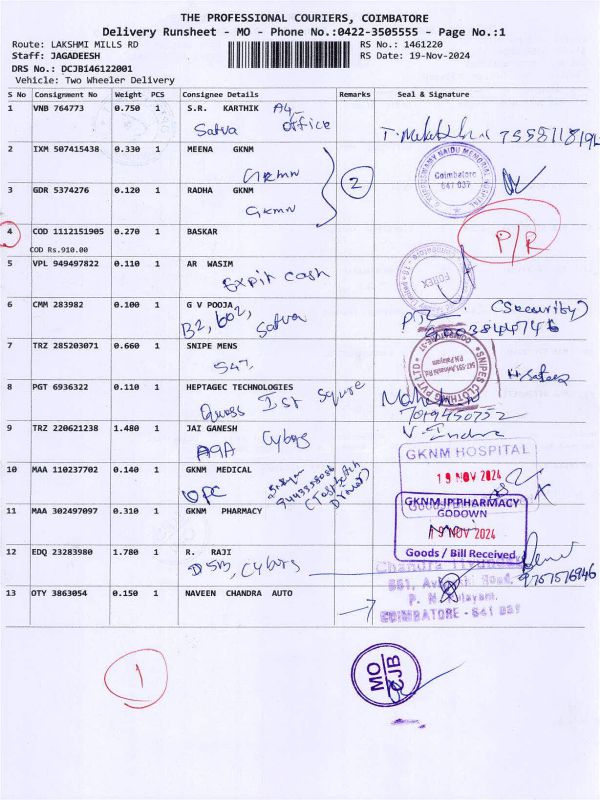 THE PROFESSIONAL COURIERS, COIMBATORE
Delivery Runsheet - MO - Phone No.:0422-3505555 - Page No.:1
Route: LAKSHMI MILLS RD
RS No.: 1461220
Staff: JAGADEESH
RS Date: 19-Nov-2024
DRS No.: DCJB146122001
Vehicle: Two Wheeler Delivery
S No Consignment No Weight PCS Consignee Details Remarks Seal & Signature
1 VNB 764773 0.750 1 S.R. KARTHIK A4
Satva office
2 IXM 507415438 0.330 1 MEENA GKNM
GKMN
2
Coimbatore
641 037
3 GDR 5374276 0.120 1 RADHA GKNM
GKMN
4 COD 1112151905 0.270 1 BASKAR
P/R
COD Rs.910.00
5 VPL 949497822 0.110 1 AR WASIM
cash
FOREX
6 CMM 283982 0.100 1 G V POOJA
B2, 602, Satva
(Security)
7 TRZ 285203071 0.660 1 SNIPE MENS
547
SNIPES CLOTHING PVT LTD
8 PGT 6936322 0.110 1 HEPTAGEC TECHNOLOGIES
Ist
7019450752
9 TRZ 220621238 1.480 1 JAI GANESH
A9A Cyborg
V. Indra
GKNM HOSPITAL
19 NOV 2024
10 MAA 110237702 0.140 1 GKNM MEDICAL
11 MAA 302497097 0.310 1 GKNM PHARMACY
GKNM IP PHARMACY
GODOWN
19 NOV 2024
Goods / Bill Received
12 EDQ 23283980 1.780 1 R. RAJI
D5B, Cyborg
9757576946
13 OTY 3863054 0.150 1 NAVEEN CHANDRA AUTO
COIMBATORE - 641 037
1
MO
CJB